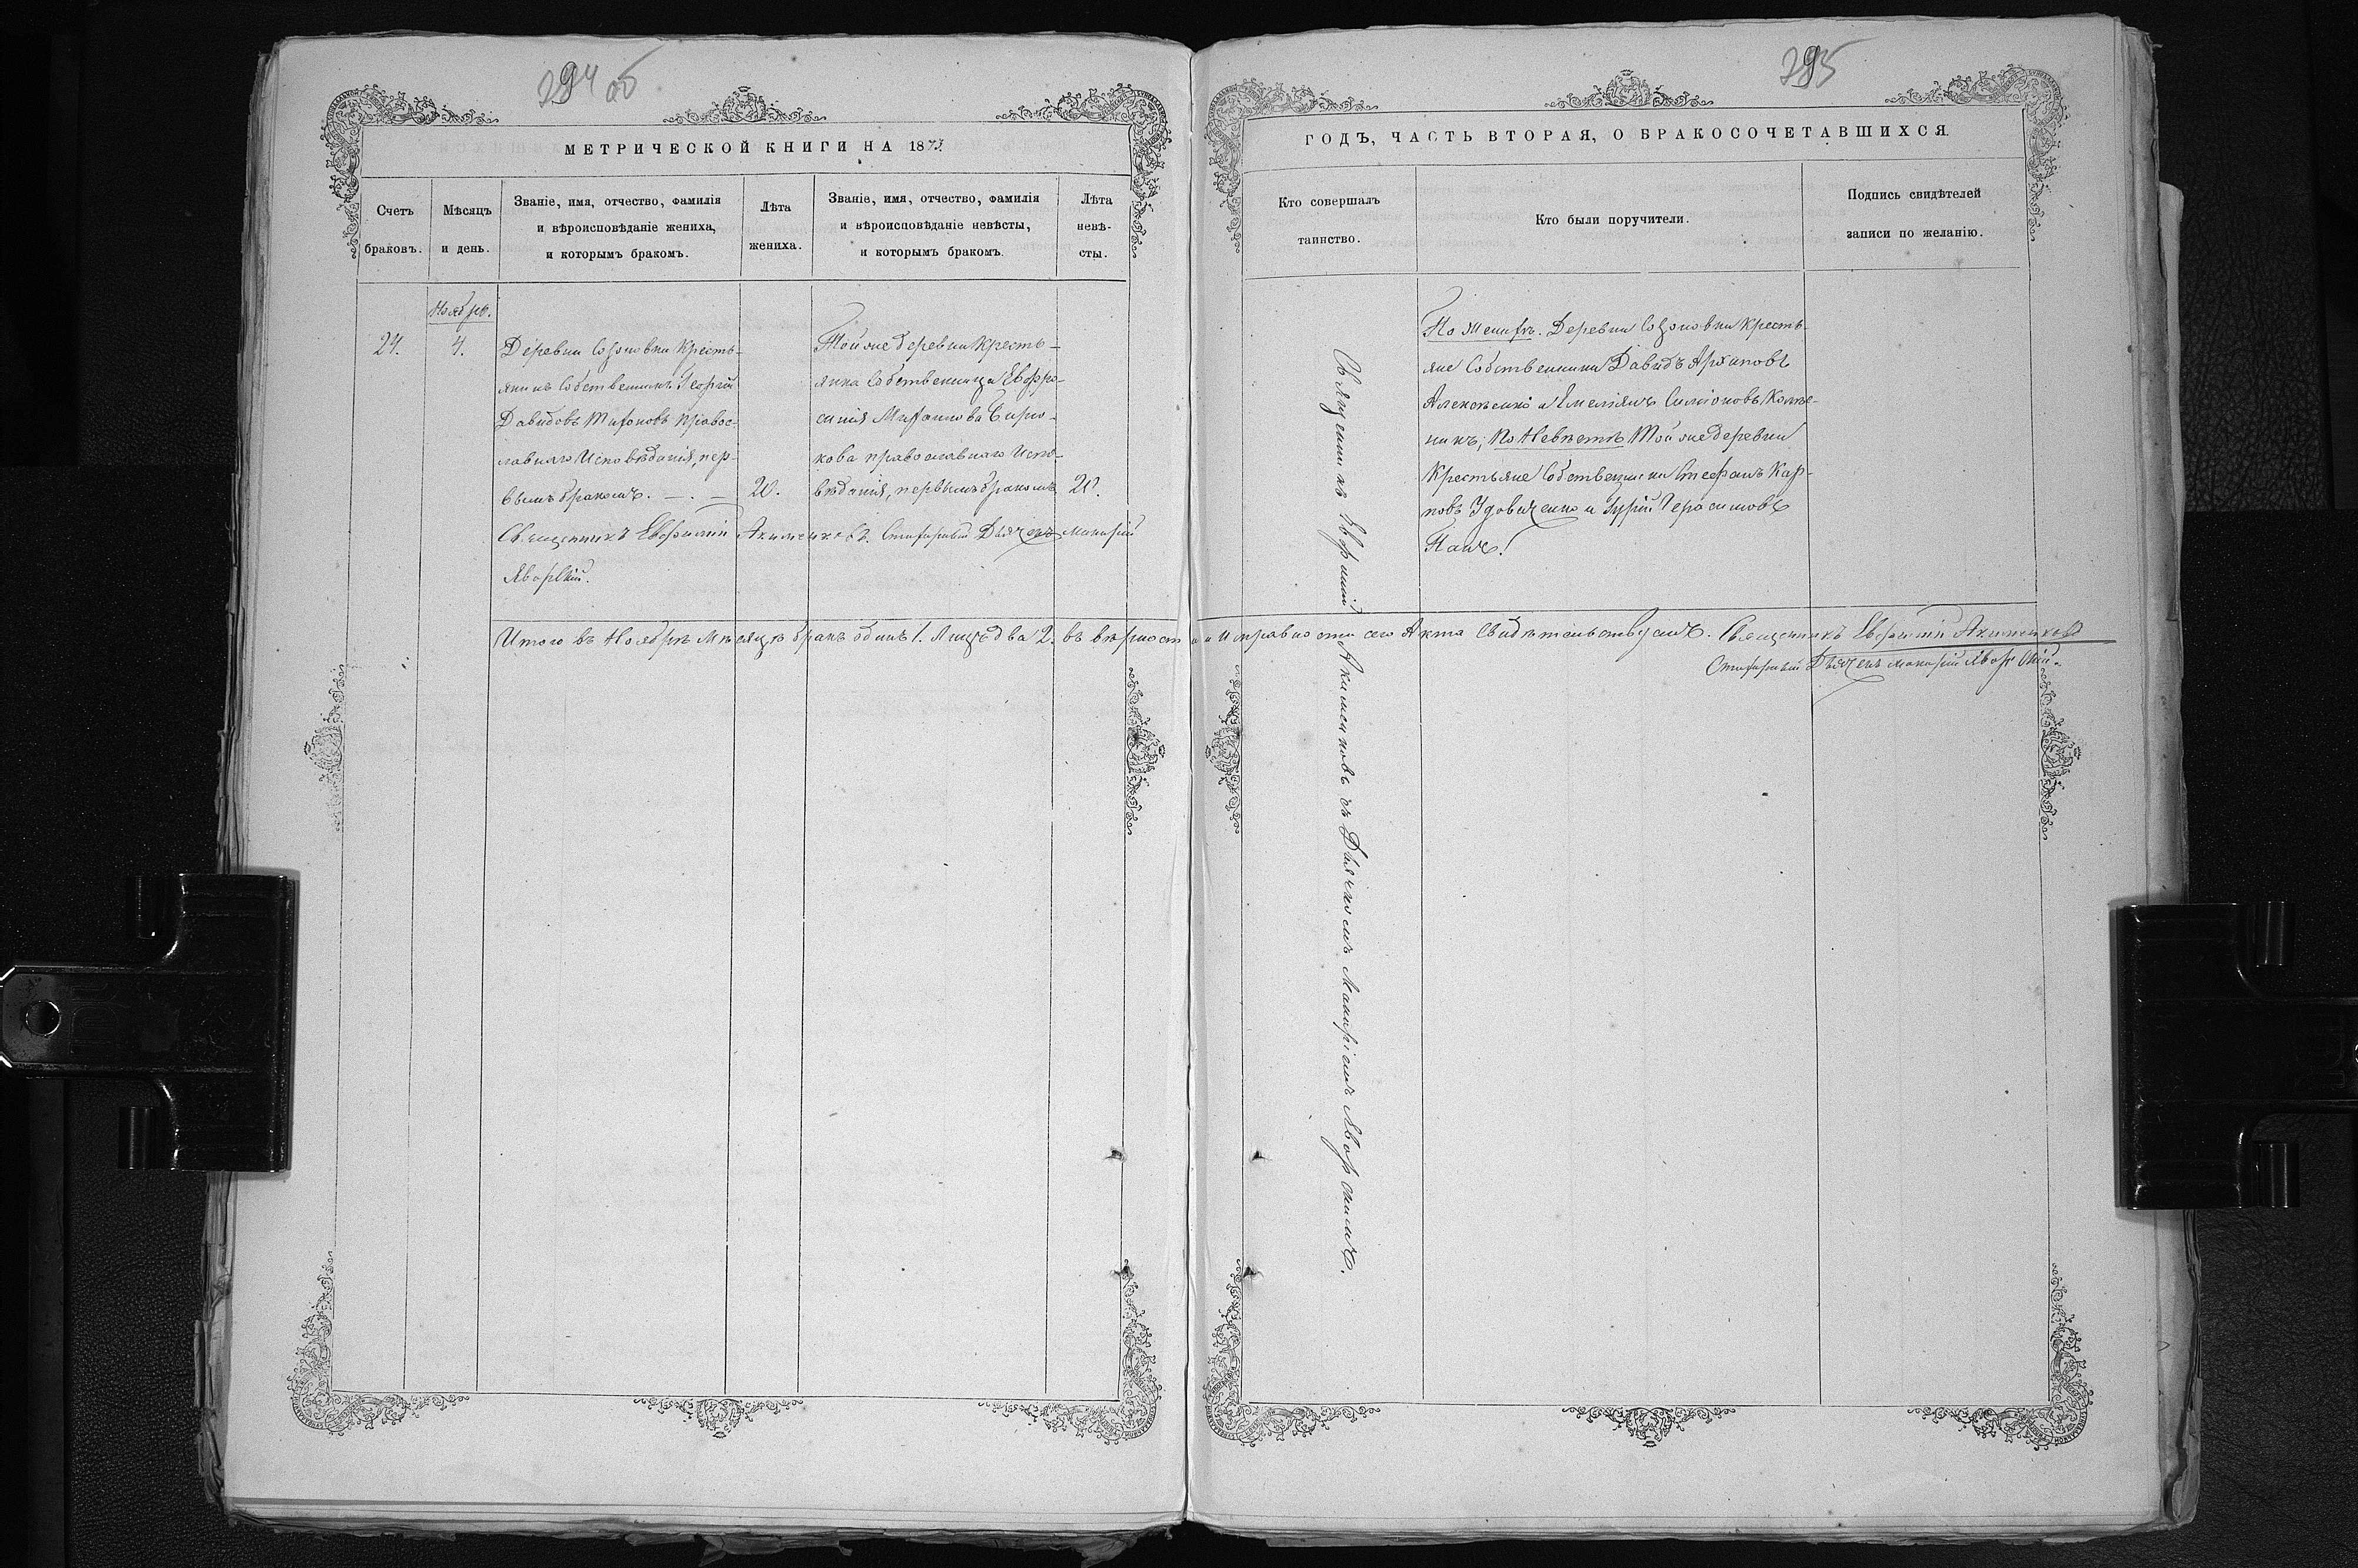 294 об
МЕТРИЧЕСКОЙ КНИГИ НА 1873
Счетъ браковъ.
Мѣсяцъ и день.
Званіе, имя, отчество, фамилія
и вѣроисповѣданіе жениха,
и которымъ бракомъ.
Лѣта
жениха.
Званіе, имя, отчество, фамилія
и вѣроисповѣданіе невѣсты,
и которымъ бракомъ.
Лѣта
невѣ-
сты.
Ноябрь.
24.
4.
Деревни Созоновки Кресть-
янинъ Собственникъ Георгій
Давидовъ Тихоновъ Правос-
лавнаго Исповѣданія, пер-
вымъ бракомъ.
20.
Той же деревни Кресть-
янка Собственница Евфро-
синія Михаилова
кова православнаго Испо-
вѣданія, первымъ бракомъ
20.
Священникъ Евфимій Акименковъ. Стихарный Дьячекъ Макарій
Яворскій.
Итого въ Ноябрѣ Мѣсяцѣ бракъ одинъ 1. Лицъ два 2. въ вѣрности и исправности сего Акта Свидѣтельствуемъ. Священникъ Евфимій Акименковъ
Стихарный Дьячекъ Макарій Яворскій.
295
ГОДЪ, ЧАСТЬ ВТОРАЯ, О БРАКОСОЧЕТАВШИХСЯ.
Кто совершалъ
таинство.
Кто были поручители.
Подпись свидѣтелей
записи по желанію.
Священникъ Евфимій Акименковъ съ Дьячкомъ Макаріемъ Яворскимъ.
По Женихѣ. Деревни Созоновки Кресть-
яне Собственники Давидъ Архиповъ
Алексѣенко и Емеліянъ Симіоновъ
никъ; по Невѣстѣ Той же деревни
Крестьяне Собственники Стефанъ Кар-
повъ Удовиченко и Гурій Герасимовъ